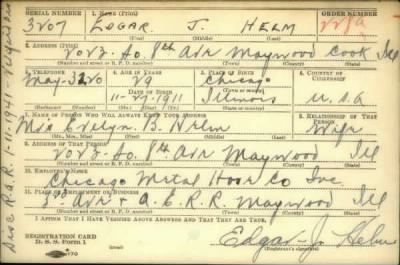 SERIAL NUMBER 1. NAME (Print) ORDER NUMBER
3207 EDGAR J. HELM
(First) (Middle) (Last)
2. ADDRESS (Print)
2023 So. 8th Avr Maywood Cook Ill
(Number and street or R. F. D. number) (Town) (County) (State)
3. TELEPHONE 4. AGE IN YEARS 5. PLACE OF BIRTH 6. COUNTRY OF CITIZENSHIP
May-3220 29 Chicago
DATE OF BIRTH (Town or county)
1911 Illinois U.S.A
(Mo.) (Day) (Yr.) (State or country)
7. NAME OF PERSON WHO WILL ALWAYS KNOW YOUR ADDRESS 8. RELATIONSHIP OF THAT PERSON
Mrs. Evelyn B. Helm Wife
(Mr., Mrs., Miss) (First) (Middle) (Last)
9. ADDRESS OF THAT PERSON
2023 So. 8th Avr Maywood Ill
(Number and street or R. F. D. number) (Town) (County) (State)
10. EMPLOYER'S NAME
Chicago Metal Hose Co Inc.
11. PLACE OF EMPLOYMENT OR BUSINESS
3rd Avr & A. E. R. R. Maywood Ill
(Number and street or R. F. D. number) (Town) (County) (State)
I AFFIRM THAT I HAVE VERIFIED ABOVE ANSWERS AND THAT THEY ARE TRUE.
REGISTRATION CARD
D. S. S. Form 1 Edgar J. Helm
(Registrant's signature)
Disc R.A.R. 1-11-1945